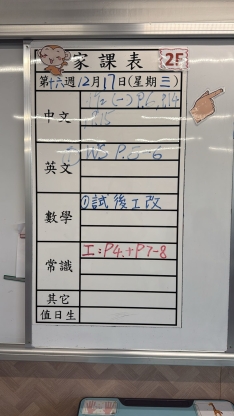 家課表
2F
第十六週12月17日(星期三)
中文
P.15
英文
① WS P.5-6
數學
①試後工改
常識
工:P4.+P7-8
其它
值日生